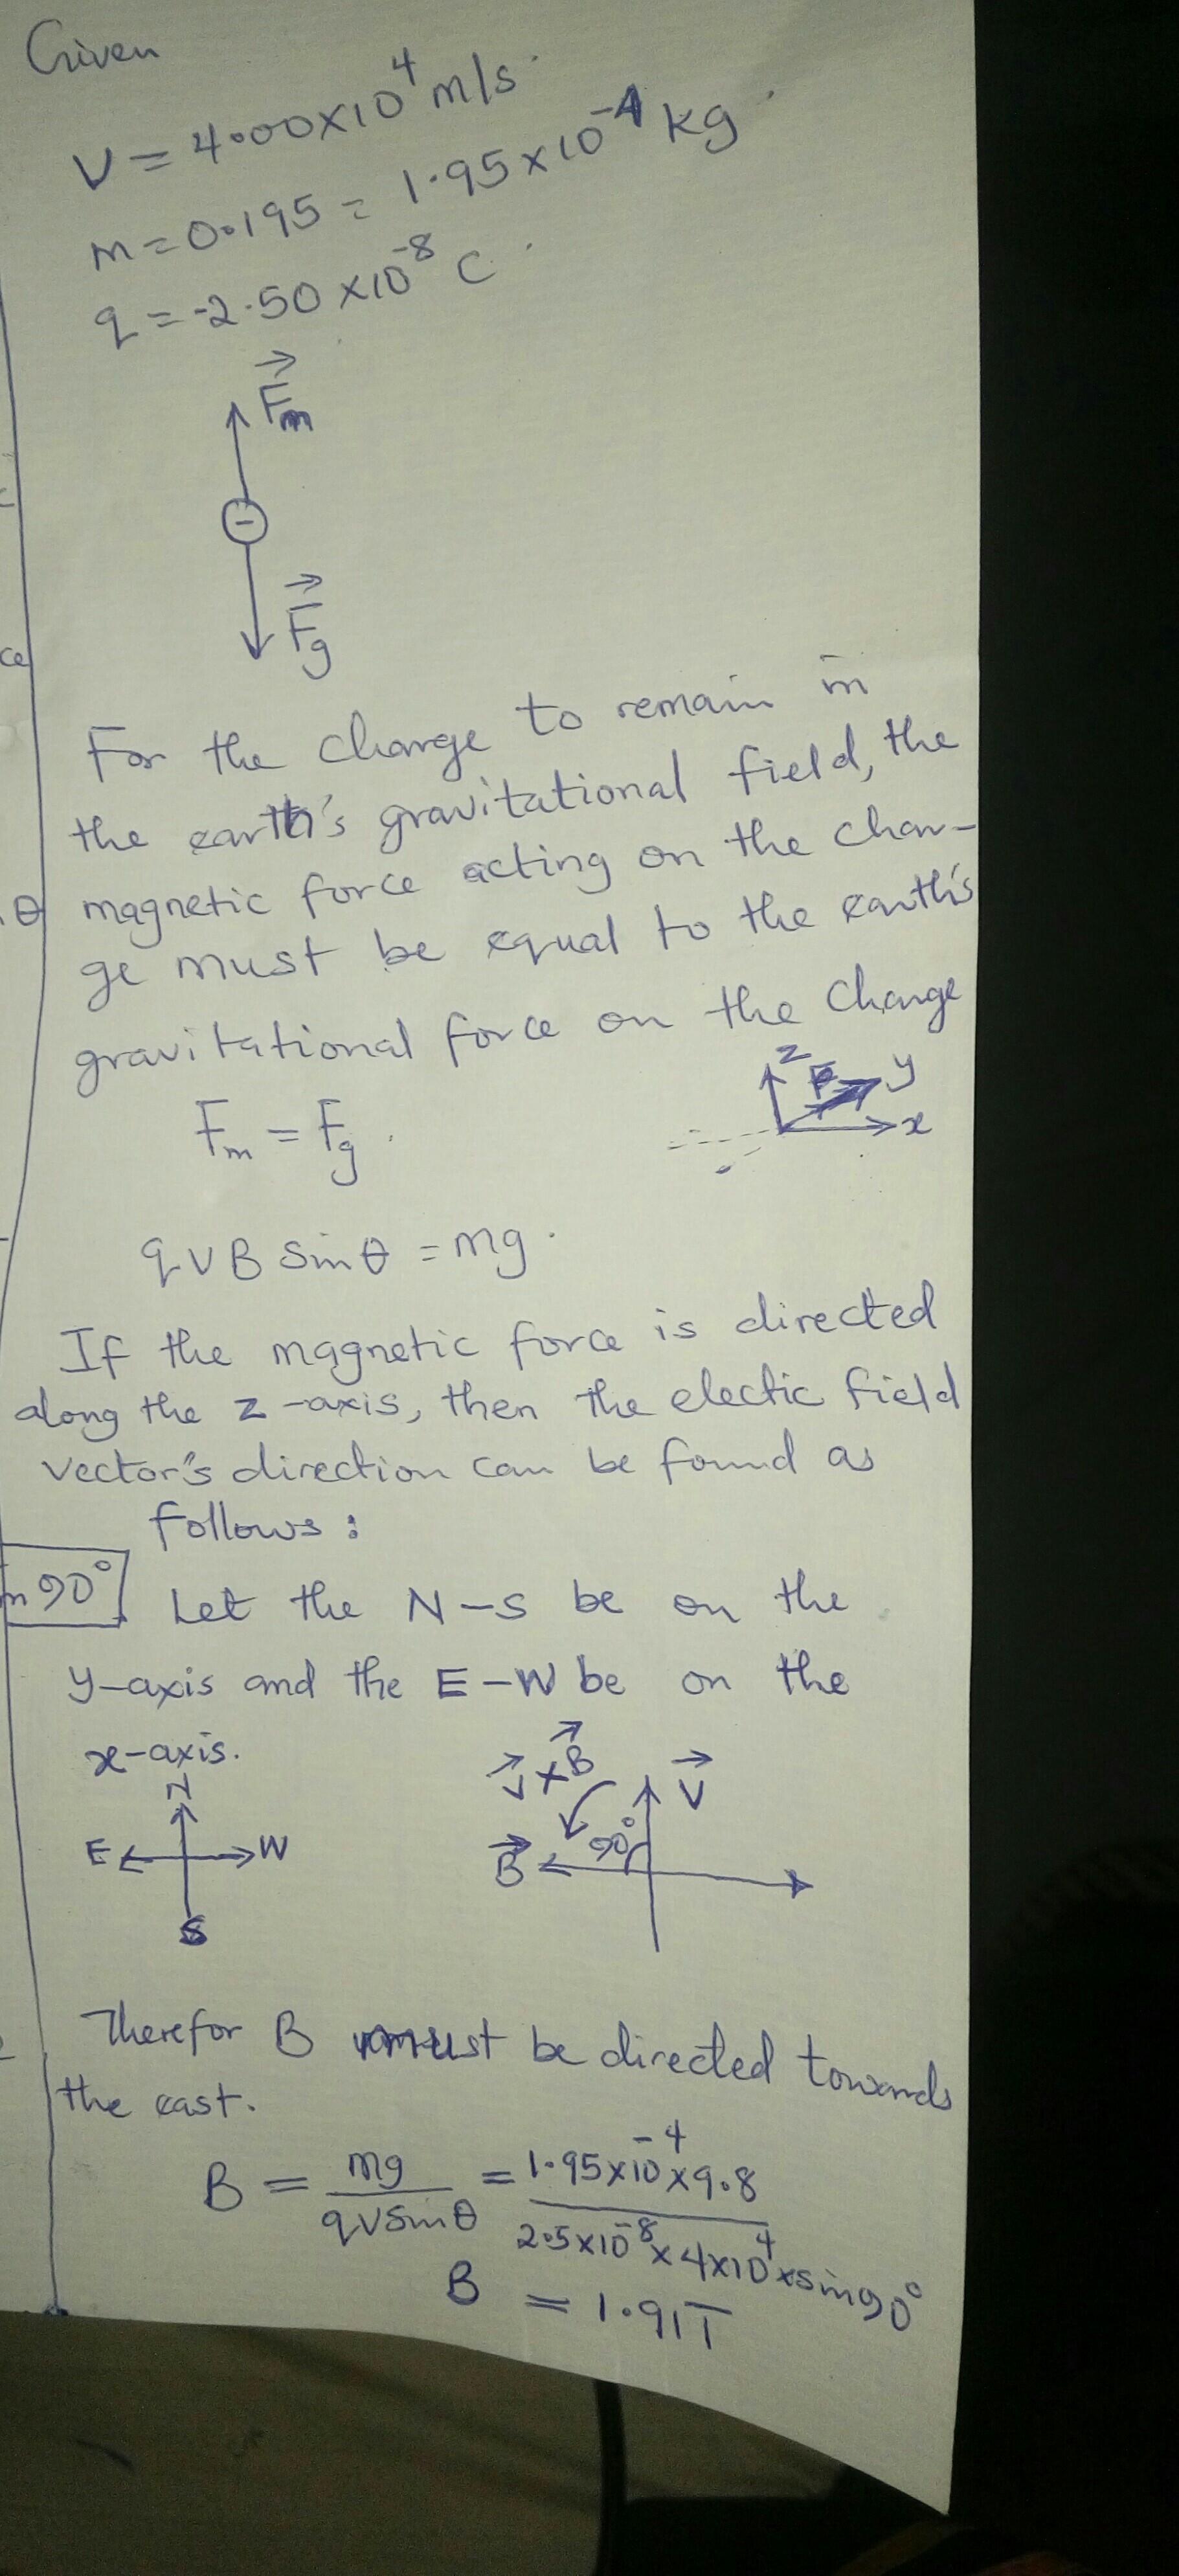 Given
V = 4.00×10⁴ m/s.
m = 0.195 = 1.95×10⁻⁴ kg.
q = -2.50×10⁻⁸ C.
F⃗m
−
F⃗g
For the charge to remain in
the earth's gravitational field, the
magnetic force acting on the char-
ge must be equal to the earth's
gravitational force on the charge
z
y
x
Fm = Fg.
qVB Sinθ = mg.
If the magnetic force is directed
along the z-axis, then the electic field
vector's direction can be found as
follows:
Let the N-S be on the
y-axis and the E-W be on the
x-axis.
N
E W
S
V⃗ × B⃗
V⃗
90°
B⃗
Therefor B must be directed towards
the east.
B = mg / qVSinθ = 1.95×10⁻⁴×9.8 / 2.5×10⁻⁸×4×10⁴×sin90°
B = 1.91T
ce
θ
n90°